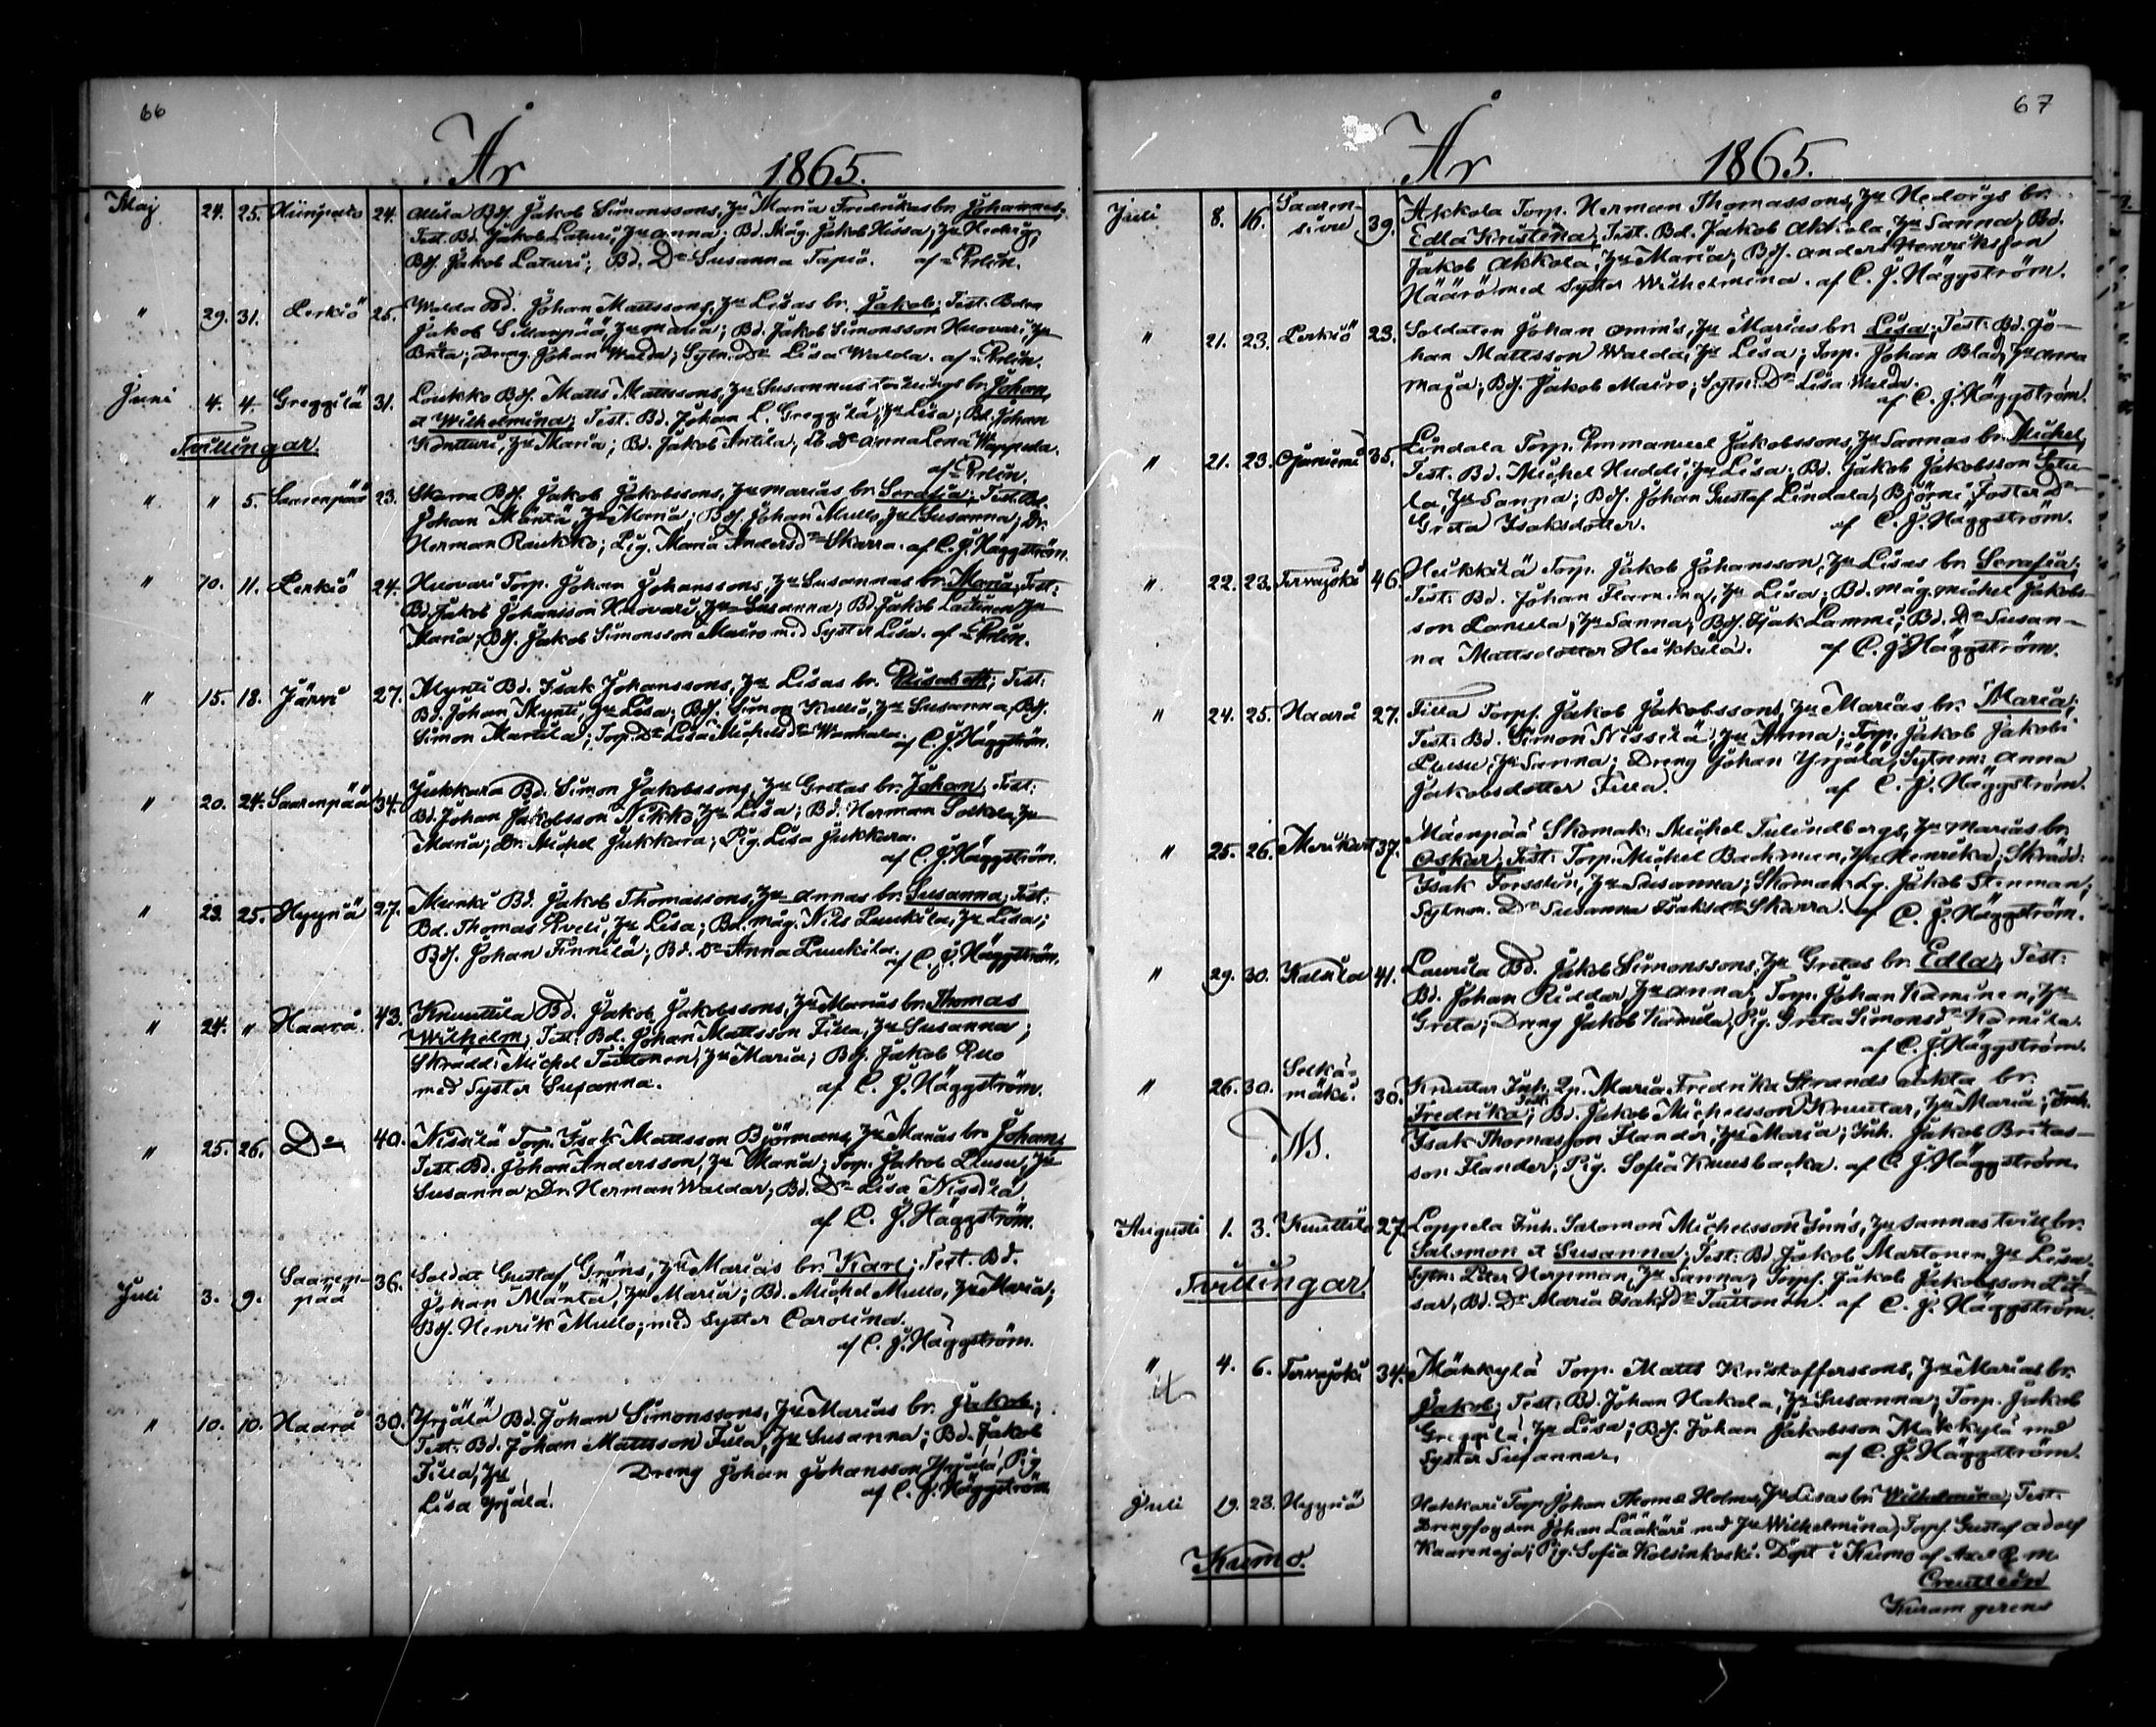 66
År 1865.
Maj 24. 25. 24. Ollila Bdf. Jakob Simonssons, Hu Maria Fredrikas br. Johannes;
Test. Bd. Jakob Laturi, Hu Anna; Bd. Måg. Jakob Hissa, Hu Hedvig,
Bdf. Jakob Laturi; Bd. Dr Susanna Tapio. af Erlin.
" 29. 31. Lerkiö 25. Walda Bd. Johan Mattssons, Hu Lisas br. Jakob; Test. Bdrn
Jakob Sillanpää, Hu Maria; Bd. Jakob Simonsson Huovari, Hu
Brita; Dreng. Johan Walda; Sytn. Dr Lisa Walda. af Erlin.
Juni 4. 4. Greggilä 31. Loukko Bdf. Matts Mattssons, Hu Susannas tvillings br. Johan
et Wilhelmina; Test. Bd. Johan L. Greggilä, Hu Lisa; Bd. Johan
Tvillingar. Kontturi, Hu Maria; Bd. Jakob Antila, Lb Dr Anna Lena
af Erlin.
" " 5. Saarenpää 23. Skarra Bdf. Jakob Jakobssons, Hu Marias br. Serafia; Test. Bd.
Johan Mäntä, Hu Maria; Bdf. Johan Mullo, Hu Susanna; Dr.
Herman Raukko; Pig. Maria Andersdr Skarra. af C. J. Häggström.
" 10. 11. Lerkiö 24. Huovari Torp. Johan Johanssons, Hu Susannas br. Maria; Test:
Bd. Jakob Johansson Huovari, Hu Susanna; Bd. Jakob Lautinen, Hu
Maria; Bdf. Jakob Simonsson Mauro med Syster Lisa. af Erlin.
" 15. 18. Järvi 27. Mynti Bd. Isak Johanssons, Hu Lisas br. Elisabeth; Test:
Bd. Johan Mynti, Hu Lisa; Bdf. Simon Kallio, Hu Susanna, Bdf.
Simon Martila; Torp. Dr Lisa Michelsdr Wanhala.
af C. J. Häggström.
" 20. 24. Saarenpää 34. Jukkara Bd. Simon Jakobssons, Hu Gretas br. Johan; Test:
Bd. Johan Jakobsson Nikko, Hu Lisa; Bd. Herman Solkela, Hu
Maria; Dr. Michel Jukkara; Pig. Lisa Jukkara.
af C. J. Häggström.
" 23. 25. Hyynä 27. Munki Bd. Jakob Thomassons, Hu Annas br. Susanna; Test:
Bd. Thomas Eveli, Hu Lisa; Bd. måg. Nils Luukila, Hu Lisa;
Bdf. Johan Finnilä; Bd. Dr Anna Luukila.
af C. J. Häggström.
" 24. " Haara. 43. Knuuttila Bd. Jakob Jakobssons, Hu Marias br. Thomas
Wilhelm; Test. Bd. Johan Mattsson Filla, Hu Susanna;
Skrädd: Michel Tuittonen, Hu Maria; Bdf. Jakob Ello
med Syster Susanna. af C. J. Häggström.
" 25. 26. Do 40. Nissilä Torp. Isak Mattsson Björmans, Hu Marias br. Johan;
Test. Bd. Johan Andersson, Hu Maria; Torp. Jakob Luusu, Hu
Susanna; Dr. Herman Waldar, Bd. Dr Lisa Nissilä
af C. J. Häggström.
Juli 3. 9. Saarenpää 36. Soldat Gustaf Gröns, Hu Marias br. Karl; Test. Bd.
Johan Mäntä, Hu Maria; Bd. Michel Mullo, Hu Maria;
Bdf. Henrik Mullo, med Syster Carolina.
af C. J. Häggström.
" 10. 10. Haara 30. Yrjälä Bd. Johan Simonssons, Hu Marias br. Jakob;
Test. Bd. Johan Mattsson Filla, Hu Susanna; Bd. Jakob
Filla, Hu Dreng Johan Johansson Yrjälä, Pig
Lisa Yrjälä. af C. J. Häggström
67
År 1865.
Juli 8. 16. Saarensivu 39. Akkola Torp. Herman Thomassons, Hu Hedvigs br.
Edla Kristina; Test. Bd. Jakob Akkola, Hu Sanna, Bd.
Jakob Akkola, Hu Maria; Bdf. Anders Henriksson
Häärö med Syster Wilhelmina. af C. J. Häggström.
" 21. 23. Lerkiö 23. Soldaten Johan Amm's, Hu Marias br. Lisa; Test: Bd. Jo-
han Mattsson Walda, Hu Lisa; Torp. Johan Blad, Hu Anna
Maja; Bdf. Jakob Mauro; Sytn: Dr Lisa Walda.
af C. J. Häggström.
" 21. 23. Ojaniemi 35. Lindala Torp. Emmanuel Jakobssons, Hu Sannas br. Michel;
Test. Bd. Michel Huddi, Hu Lisa. Bd. Jakob Jakobsson Setu-
la, Hu Sanna; Bdf. Johan Gustaf Lindala, Björni Foster Dr
Greta Isaksdotter. af C. J. Häggström.
" 22. 23. Tervajoki 46. Heikkilä Torp. Jakob Johansson, Hu Lisas br Serafia;
Test: Bd. Johan Flaming, Hu Lisa; Bd. måg. Michel Jakobs-
son Panula, Hu Sanna; Bdf. Isak Lammi; Bd. Dr Susan-
na Mattsdotter Heikkilä. af C. J. Häggström.
" 24. 25. Haara 27. Filla Torpf. Jakob Jakobssons, Hu Marias br. Maria;
Test: Bd. Simon Nissilä, Hu Anna; Torp. Jakob Jakobs
Luusu, Hu Sanna; Dreng Johan Yrjälä, Sytnm: Anna
Jakobsdotter Filla. af C. J. Häggström.
" 25. 26. Merikart 37. Mäenpää Skomak: Michel Tulindbergs, Hu Marias br.
Oskar; Test: Torp. Michel Backman, Hu Henrika; Skrädd:
Isak Forsstén, Hu Susanna; Skomak. Lg. Jakob Stenman;
Sytnm. Dr Susanna Isaksdr Skarra. af C. J. Häggström.
" 29. 30. Kalsila 41. Laurila Bd. Jakob Simonssons, Hu Gretas br. Edla, Test:
Bd. Johan Riddar, Hu Anna; Torp. Johan Kaminen, Hu
Greta; Dreng Jakob Kamila, Pig. Greta Simonsdr Kamila.
af C. J. Häggström.
" 26. 30. Selkämäki. 30. Knuutar Inh. Qp. Maria Fredrika Strands oäkta br.
Fredrika; Test: Bd. Jakob Michelsson Knuutar, Hu Maria; Inh.
Isak Thomasson Flander, Hu Maria; Inh. Jakob Britas-
son Flander; Pig. Sofia Knusbacka. af C. J. Häggström.
Augusti 1. 3. Knuttila 27. Loppela Inh. Salomon Michelsson Inn's, Hu Sannas tvill br.
Salomon et Susanna; Test: Bd. Jakob Martonen, Hu Lisa.
Tvillingar. Sytn: Peter Herpman, Hu Sanna, Torpf. Jakob Jakobsson
sar, Bd. Dr Maria Isaksdr Tuittonen. af C. J. Häggström.
" 4. 6. Tervajoki 34. Mätkkylä Torp. Matts Kristofferssons, Hu Marias br.
Jakob; Test: Bd. Johan Hakala, Hu Susanna; Torp. Jakob
Greggilä, Hu Lisa; Bdf. Johan Jakobsson Mätkkylä med
Syster Susanna. af C. J. Häggström.
Juli 19. 23. Hyynä Hakkari Torp. Johan Thomas Holms, Hu Lisas br. Wilhelmina; Test.
Drengfogden Johan Lääkäri med Hu Wilhelmina, Torpf. Gustaf Adolf
Kumo. Kaarenoja; Pig. Sofia Kolsinkoski. Döpt i Kumo af
Creutlein
Kuram gerens